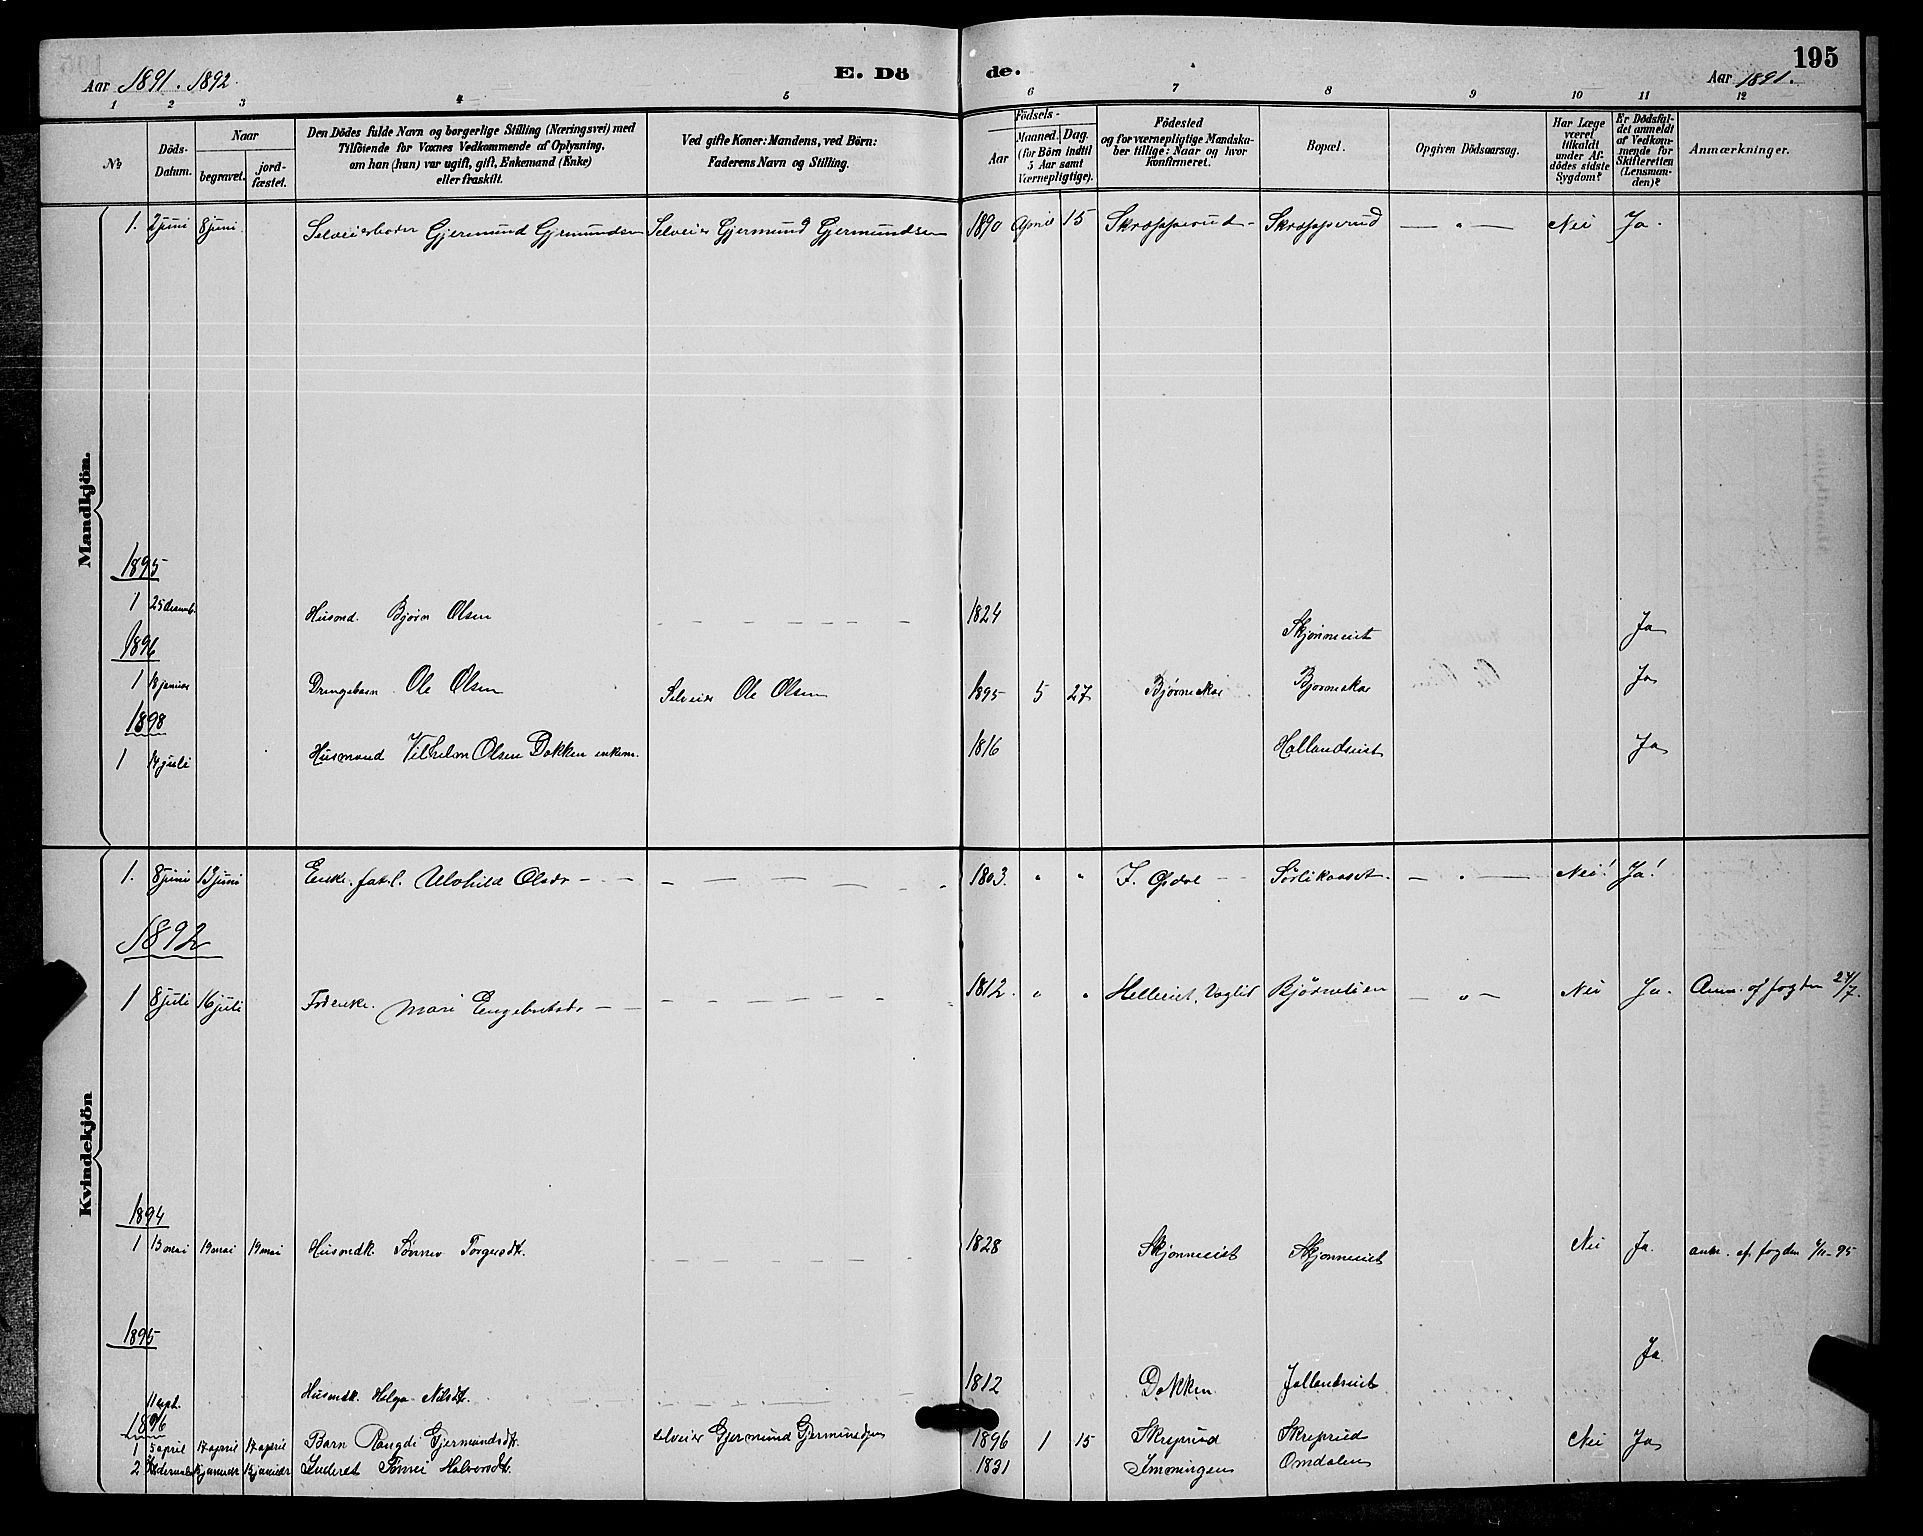 195
Aar 1891. 1892
E. Dö
de.
Aar 1891.
1 2 3 4 5 6 7 8 9 10 11 12
№
Döds-
Datum.
Naar
begravet.
jord-
fæstet.
Den Dödes fulde Navn og borgerlige Stilling (Næringsvei) med
Tilföiende for Voxnes Vedkommende af Oplysning,
om han (hun) var ugift, gift, Enkemand (Enke)
eller fraskilt.
Ved gifte Koner: Mandens, ved Börn:
Faderens Navn og Stilling.
Födsels-
Aar
Maaned. Dag.
(for Börn indtil
5 Aar samt
Værnepligtige).
Födested
og for værnepligtige Mandska-
ber tillige: Naar og hvor
konfirmeret.
Bopæl.
Opgiven Dödsaarsag.
Har Læge
været
tilkaldt
under Af-
dödes sidste
Sygdom?
Er Dödsfal-
det anmeldt
af Vedkom-
mende for
Skifteretten
(Lensman-
den)?
Anmærkninger.
Mandkjön.
1. 2 juni 8 juni Gjermund Gjermundsen Selveier Gjermund Gjermundsen 1890 April 15 Skrapperud - Skrapperud — " — Nei Ja.
1895
1 25 decemb. Husmd. Bjørn Olsen 1824 Skjønneiet Ja
1896
1 18 januar Drengebarn Ole Olsen Selveier Ole Olsen 1895 5 27 Bjørneskar Bjørneskar Ja
1898
1 14 juli Husmand Vilhelm Olsen Dokken enkem. 1816 Hallandseiet Ja
Kvindekjön
1. 8 juni 13 juni Enke. Olsdr 1803. " " Opdal — " — Nei! Ja!
1892
1 8 juli 16 juli Mari Engebretsdr 1812. " " Helleeiet, Veglid Bjørnelien — " — Nei Ja. Anm. af fogden 27/7.
1894
1 13 mai 19 mai 19 mai Husmdk. Sønnev Torgersdt. 1828 Skjønneeiet Skjønneeiet Nei Ja. anm. af fogden -95
1895
11 sept. Husmdk. Helga Nilsdt. 1812 Dokken Jallandseiet Ja
1896
1 5 april 17 april 17 april Barn Rangdi Gjermundsdt. selveier Gjermund Gjermundsen 1896 1 15 Skreprud Skreprud Nei Ja
2 Inderst Halvorsdt. 1831 Imingen Omdalen